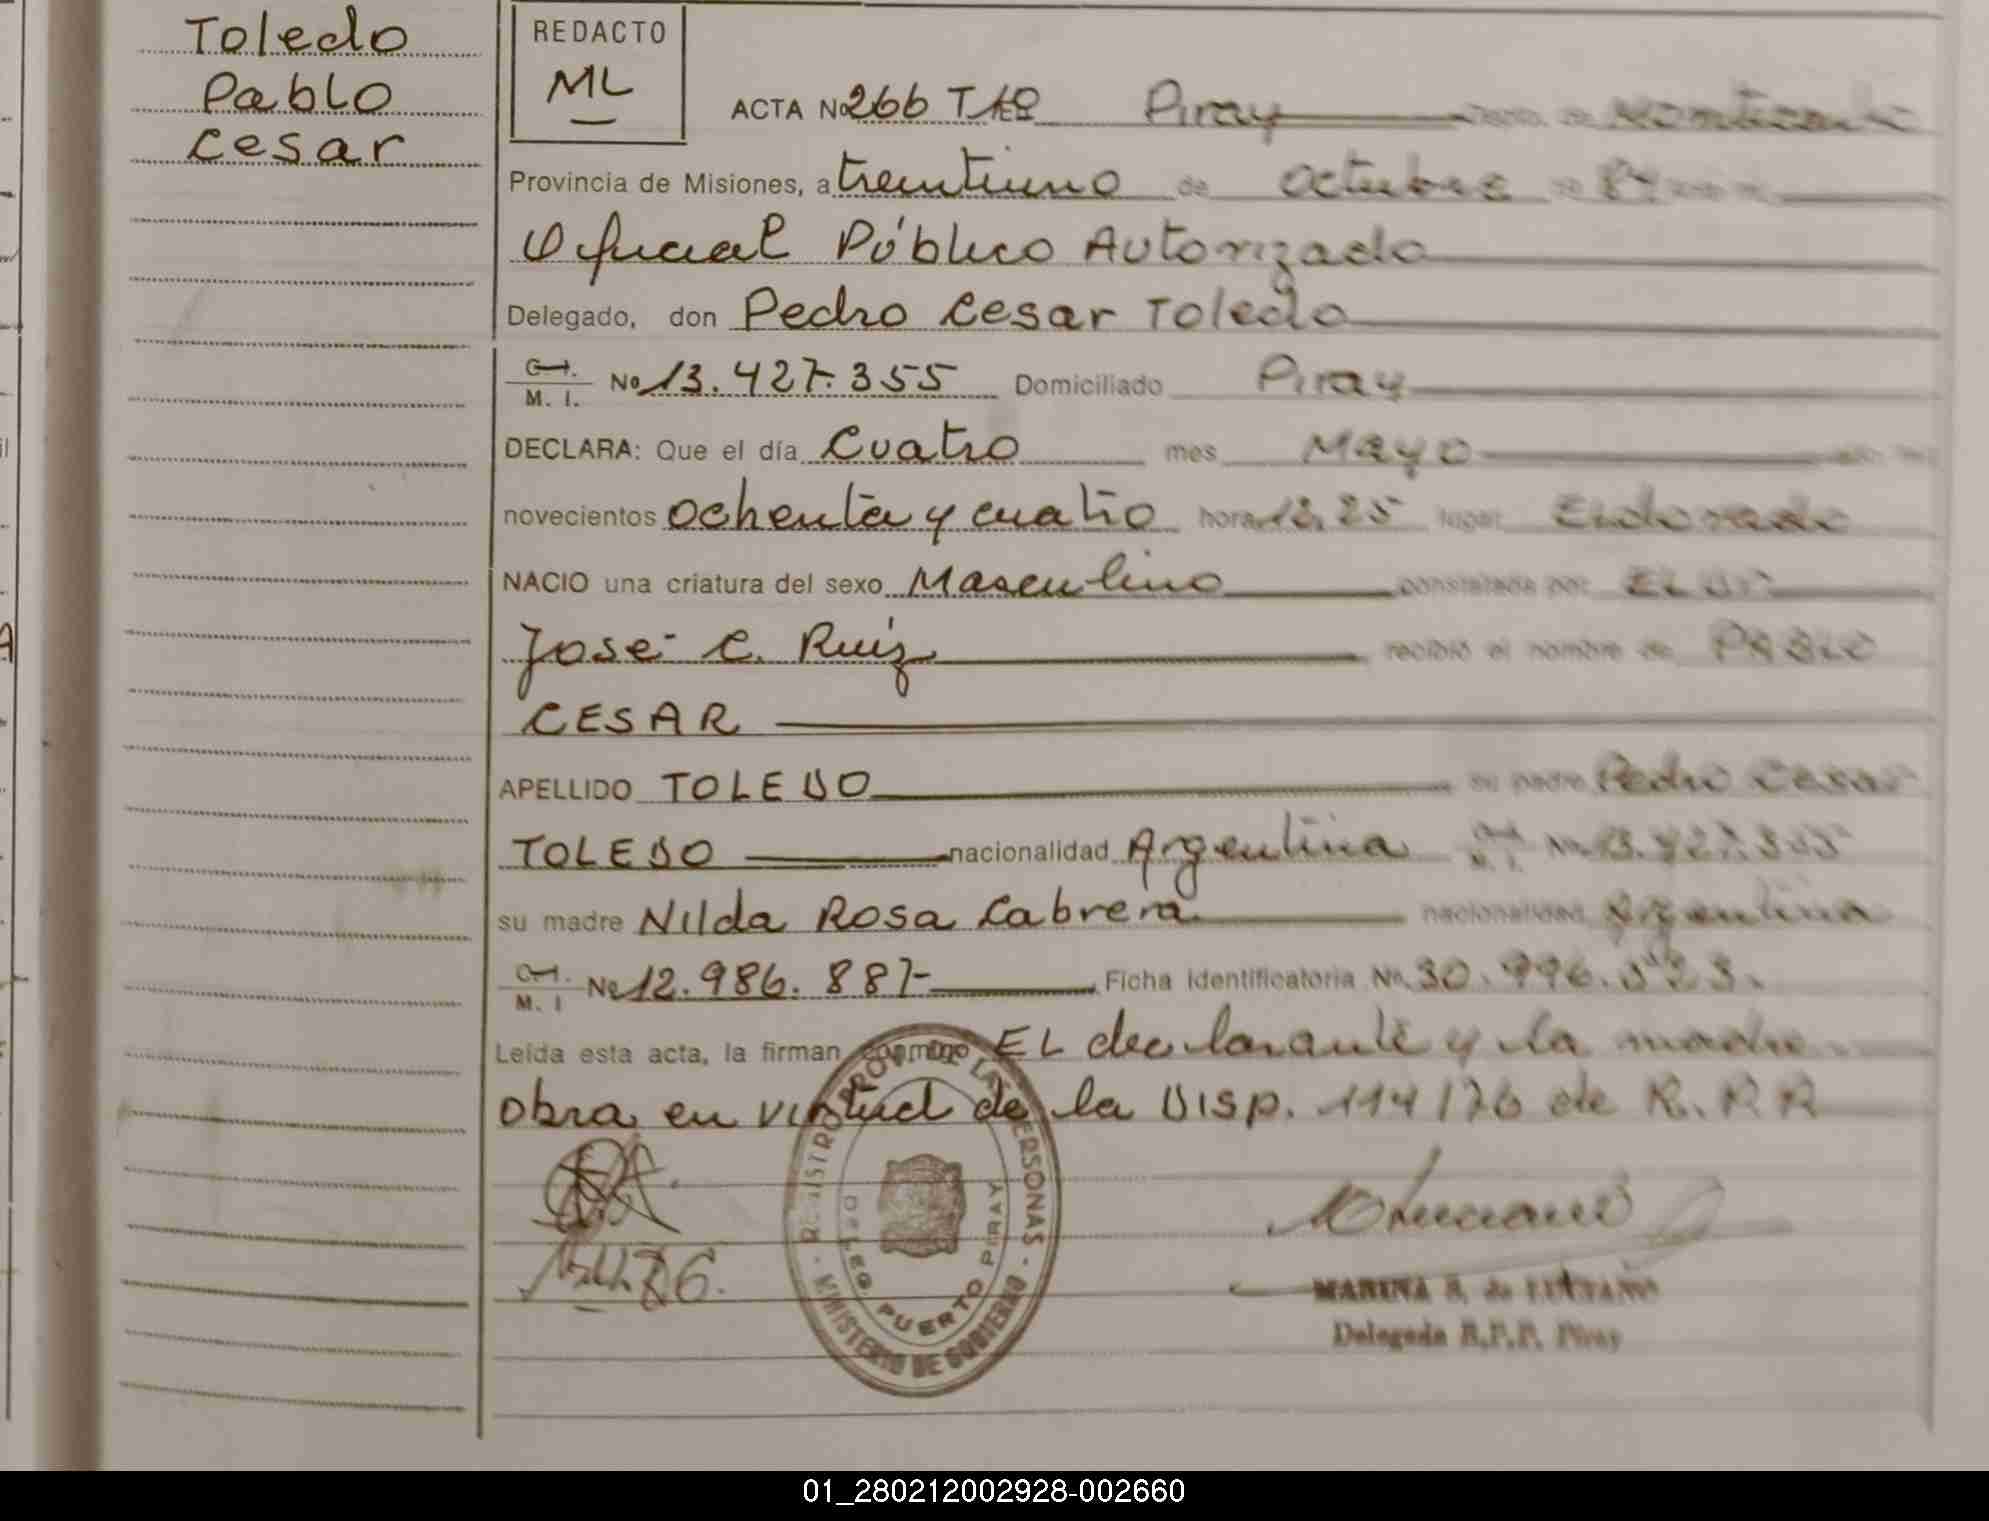 Toledo
Pablo
Cesar
REDACTO
ML
ACTA Nº 266 T1º Piray Depto. de
Provincia de Misiones, a treintiuno de octubre de 84
Oficial Público Autorizado
Delegado, don Pedro Cesar Toledo
M. I. Nº 13.427.355 Domiciliado Piray
DECLARA: Que el día Cuatro mes Mayo
novecientos ochenta y cuatro hora 12,25 lugar Eldorado
NACIO una criatura del sexo Masculino constatada por EL Dr
José C. Ruiz recibió el nombre de PABLO
CESAR
APELLIDO TOLEDO su padre Pedro Cesar
TOLEDO nacionalidad Argentina M. I. Nº 13.427.355
su madre Nilda Rosa Cabrera nacionalidad Argentina
M. I Nº 12.986.887- Ficha Identificatoria Nº 30.996.523.
Leida esta acta, la firman conmigo EL declarante y la madre
obra en virtud de la Disp. 114/76 de R.P.P
REGISTRO PROVIN. DE LAS PERSONAS
MINISTERIO DE GOBIERNO
DELEG. PUERTO PIRAY
MARINA S. de LUTZAÑO
Delegada R.P.P. Piray
01_280212002928-002660